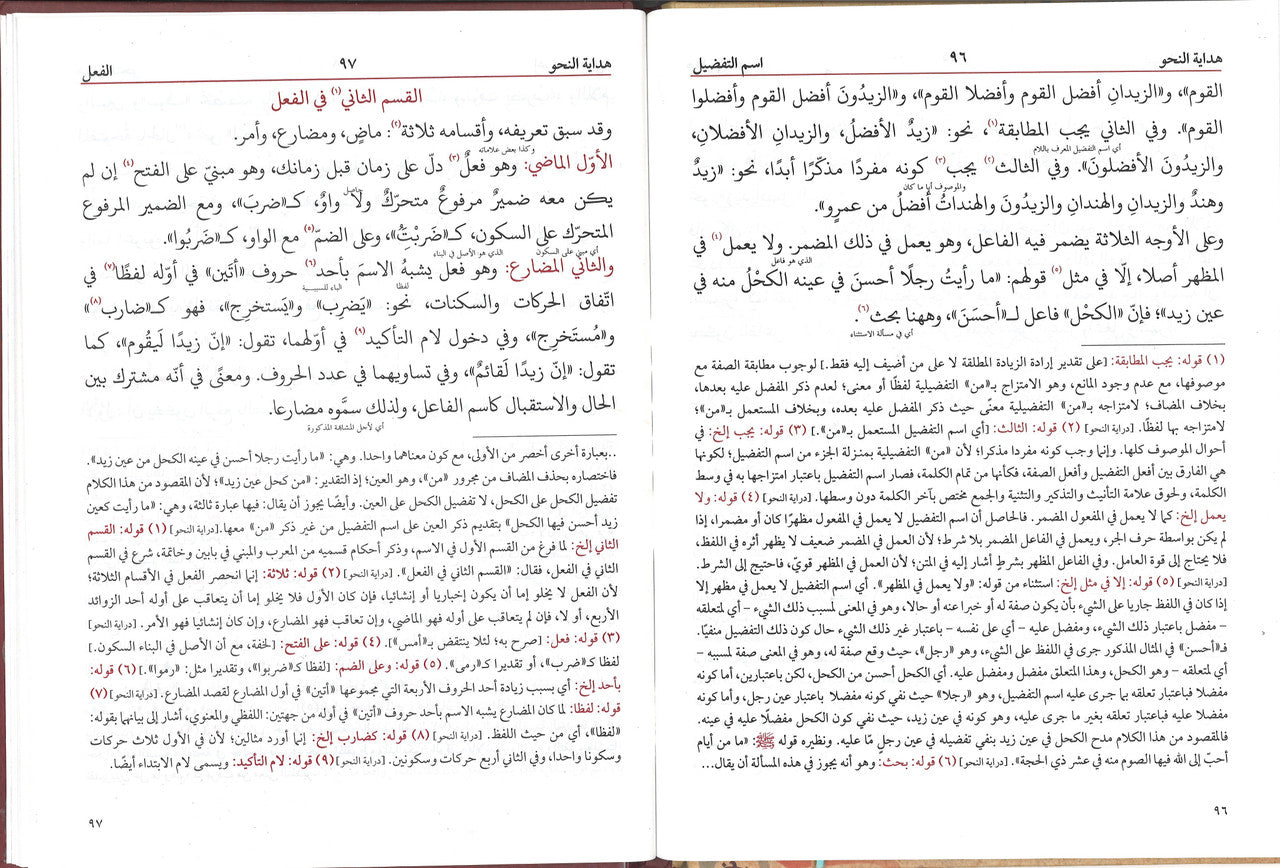 هداية النحو
٩٦
اسم التفضيل
القوم»، و«الزيدانِ أفضل القوم وأفضلا القوم»، و«الزيدُونَ أفضل القوم وأفضلوا
القوم». وفي الثاني يجب المطابقة(١)، نحو: «زيدٌ الأفضلُ، والزيدانِ الأفضلانِ،
أي اسم التفضيل المعرف باللام
والزيدُونَ الأفضلونَ». وفي الثالث(٢) يجب(٣) كونه مفردًا مذكّرًا أبدًا، نحو: «زيدٌ
والموصوف أيا ما كان
وهندٌ والزيدانِ والهندانِ والزيدُونَ والهنداتُ أفضلُ من عمرٍو».
وعلى الأوجه الثلاثة يضمر فيه الفاعل، وهو يعمل في ذلك المضمر. ولا يعمل(٤) في
الذي هو فاعل
المظهر أصلا، إلّا في مثل(٥) قولهم: «ما رأيتُ رجلًا أحسنَ في عينه الكَحْلُ منه في
عين زيد»؛ فإنّ «الكحْل» فاعل لـ«أحسَنَ»، وههنا بحث(٦).
أي في مسألة الاستثناء
(١) قوله: يجب المطابقة: [على تقدير إرادة الزيادة المطلقة لا على من أضيف إليه فقط.] لوجوب مطابقة الصفة مع
موصوفها، مع عدم وجود المانع، وهو الامتزاج بـ«من» التفضيلية لفظًا أو معنى؛ لعدم ذكر المفضل عليه بعدها،
بخلاف المضاف؛ لامتزاجه بـ«من» التفضيلية معنًى حيث ذكر المفضل عليه بعده، وبخلاف المستعمل بـ«من»؛
لامتزاجه بها لفظًا. [دراية النحو] (٢) قوله: الثالث: [أي اسم التفضيل المستعمل بـ«من».] (٣) قوله: يجب إلخ: في
أحوال الموصوف كلها. وإنما وجب كونه مفردا مذكرا؛ لأن «من» التفضيلية بمنزلة الجزء من اسم التفضيل؛ لكونها
هي الفارق بين أفعل التفضيل وأفعل الصفة، فكأنها من تمام الكلمة، فصار اسم التفضيل باعتبار امتزاجها به في وسط
الكلمة، ولحوق علامة التأنيث والتذكير والتثنية والجمع مختص بآخر الكلمة دون وسطها. [دراية النحو] (٤) قوله: ولا
يعمل إلخ: كما لا يعمل في المفعول المضمر. فالحاصل أن اسم التفضيل لا يعمل في المفعول مظهرًا كان أو مضمرا، إذا
لم يكن بواسطة حرف الجر، ويعمل في الفاعل المضمر بلا شرط؛ لأن العمل في المضمر ضعيف لا يظهر أثره في اللفظ،
فلا يحتاج إلى قوة العامل. وفي الفاعل المظهر بشرطٍ أشار إليه في المتن؛ لأن العمل في المظهر قويّ، فاحتيج إلى الشرط.
[دراية النحو] (٥) قوله: إلا في مثل إلخ: استثناء من قوله: «ولا يعمل في المظهر». أي اسم التفضيل لا يعمل في مظهر إلا
إذا كان في اللفظ جاريا على الشيء بأن يكون صفة له أو خبرا عنه أو حالا، وهو في المعنى لمسبب ذلك الشيء – أي لمتعلقه
– مفضل باعتبار ذلك الشيء، ومفضل عليه – أي على نفسه – باعتبار غير ذلك الشيء حال كون ذلك التفضيل منفيًا.
فـ«أحسن» في المثال المذكور جرى في اللفظ على الشيء، وهو «رجل»، حيث وقع صفة له، وهو في المعنى صفة لمسببه –
أي لمتعلقه – وهو الكحل، وهذا المتعلق مفضل ومفضل عليه. أي الكحل أحسن من الكحل، لكن باعتبارين، أما كونه
مفضلا فباعتبار تعلقه بما جرى عليه اسم التفضيل، وهو «رجلا» حيث نفي كونه مفضلا باعتبار عين رجل، وأما كونه
مفضلا عليه فباعتبار تعلقه بغير ما جرى عليه، وهو كونه في عين زيد، حيث نفي كون الكحل مفضلًا عليه في عينه.
فالمقصود من هذا الكلام مدح الكحل في عين زيد بنفي تفضيله في عين رجلٍ مّا عليه. ونظيره قوله ﷺ: «ما من أيام
أحبّ إلى الله فيها الصوم منه في عشر ذي الحجة». [دراية النحو] (٦) قوله: بحث: وهو أنه يجوز في هذه المسألة أن يقال...
٩٦
هداية النحو
٩٧
الفعل
القسم الثاني(١) في الفعل
وقد سبق تعريفه، وأقسامه ثلاثة(٢): ماضٍ، ومضارع، وأمر.
وكذا بعض علاماته
الأوّل الماضي: وهو فعلٌ(٣) دلّ على زمان قبل زمانك، وهو مبنيّ على الفتح(٤) إن لم
يكن معه ضميرٌ مرفوعٌ متحركٌ ولا واوٌ، كـ«ضربَ»، ومع الضمير المرفوع
المتحرّك على السكون، كـ«ضَربْتُ»، وعلى الضمّ(٥) مع الواو، كـ«ضَربُوا».
أي مبني على السكون
الذي هو الأصل في البناء
والثاني المضارع: وهو فعل يشبهُ الاسمَ بأحد(٦) حروف «أتَين» في أوّله لفظًا(٧) في
الباء للسببية
لفظا
اتّفاق الحركات والسكنات، نحو: «يَضرِب» و«يَستخرِج»، فهو كـ«ضارب(٨)»
و«مُستَخرِج»، وفي دخول لام التأكيد(٩) في أوّلهما، تقول: «إنّ زيدًا لَيقُوم»، كما
تقول: «إنّ زيدًا لَقائمٌ»، وفي تساويهما في عدد الحروف. ومعنًى في أنّه مشترك بين
الحال والاستقبال كاسم الفاعل، ولذلك سمَّوه مضارعا.
أي لأجل المشابهة المذكورة
..بعبارة أخرى أخصر من الأولى، مع كون معناهما واحدا. وهي: «ما رأيت رجلا أحسن في عينه الكحل من عين زيد».
فاختصاره بحذف المضاف من مجرور «من»، وهو العين؛ إذ التقدير: «من كحل عين زيد»؛ لأن المقصود من هذا الكلام
تفضيل الكحل على الكحل، لا تفضيل الكحل على العين. وأيضًا يجوز أن يقال: فيها عبارة ثالثة، وهي: «ما رأيت كعين
زيد أحسن فيها الكحل» بتقديم ذكر العين على اسم التفضيل من غير ذكر «من» معها. [دراية النحو] (١) قوله: القسم
الثاني إلخ: لما فرغ من القسم الأول في الاسم، وذكر أحكام قسميه من المعرب والمبني في بابين وخاتمة، شرع في القسم
الثاني في الفعل، فقال: «القسم الثاني في الفعل». [دراية النحو] (٢) قوله: ثلاثة: إنما انحصر الفعل في الأقسام الثلاثة؛
لأن الفعل لا يخلو إما أن يكون إخباريا أو إنشائيا، فإن كان الأول فلا يخلو إما أن يتعاقب على أوله أحد الزوائد
الأربع، أو لا، فإن لم يتعاقب على أوله فهو الماضي، وإن تعاقب فهو المضارع، وإن كان إنشائيا فهو الأمر. [دراية النحو]
(٣) قوله: فعل: [صرح به؛ لئلا ينتقض بـ«أمس».] (٤) قوله: على الفتح: [لخفة، مع أن الأصل في البناء السكون.]
لفظا كـ«ضرب»، أو تقديرا كـ«رمى». (٥) قوله: وعلى الضم: [لفظا كـ«ضربوا»، وتقديرا مثل: «رموا».] (٦) قوله:
بأحد إلخ: أي بسبب زيادة أحد الحروف الأربعة التي مجموعها «أتين» في أول المضارع لقصد المضارع. [دراية النحو] (٧)
قوله: لفظا: لما كان المضارع يشبه الاسم بأحد حروف «أتين» في أوله من جهتين: اللفظي والمعنوي، أشار إلى بيانهما بقوله:
«لفظا»، أي من حيث اللفظ. [دراية النحو] (٨) قوله: كضارب إلخ: إنما أورد مثالين؛ لأن في الأول ثلاث حركات
وسكونا واحدا، وفي الثاني أربع حركات وسكونين. [دراية النحو] (٩) قوله: لام التأكيد: ويسمى لام الابتداء أيضًا.
٩٧